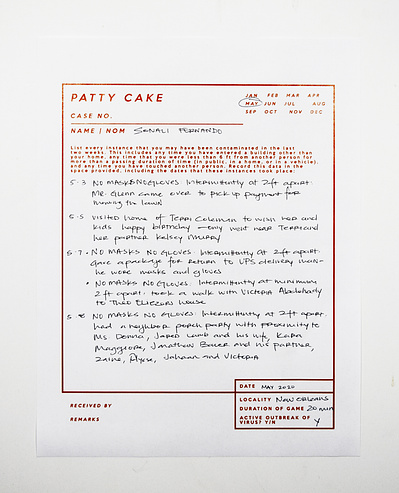 PATTY CAKE
JAN FEB MAR APR
MAY JUN JUL AUG
SEP OCT NOV DEC
CASE NO.
NAME | NOM SONALI FERNANDO
List every instance that you may have been contaminated in the last
two weeks. This includes any time you have entered a building other than
your home, any time that you were less than 6 ft from another person for
more than a passing duration of time (in public, in a home, or in a vehicle),
and any time you have touched another person. Record this data in the
space provided, including the dates that these instances took place:
5.3 NO MASKS NO GLOVES. Intermittently at 2ft apart.
Mr. Glenn came over to pick up payment for
mowing the lawn
5.5 visited home of Terri Coleman to wish her and
kids happy birthday - only went near Terri and
her partner Kelsey Murry
5.7. NO MASKS NO GLOVES. Intermittently at 2ft apart.
Gave a package for return to UPS delivery man -
he wore masks and gloves
• NO MASKS NO GLOVES. Intermittently at minimum
2ft apart. took a walk with Victoria
to Theo Eliezers house
5.8 NO MASKS NO GLOVES. Intermittently at 2ft apart.
had a neighbor porch party with proximity to
Ms Donna, Jared Lamb and his wife, Kara
Maggiore, Jonathan Bauer and his partner,
Zaine, Jahaan and Victoria
DATE MAY 2020
LOCALITY New Orleans
DURATION OF GAME 20 min
ACTIVE OUTBREAK OF
VIRUS? Y/N Y
RECEIVED BY
REMARKS